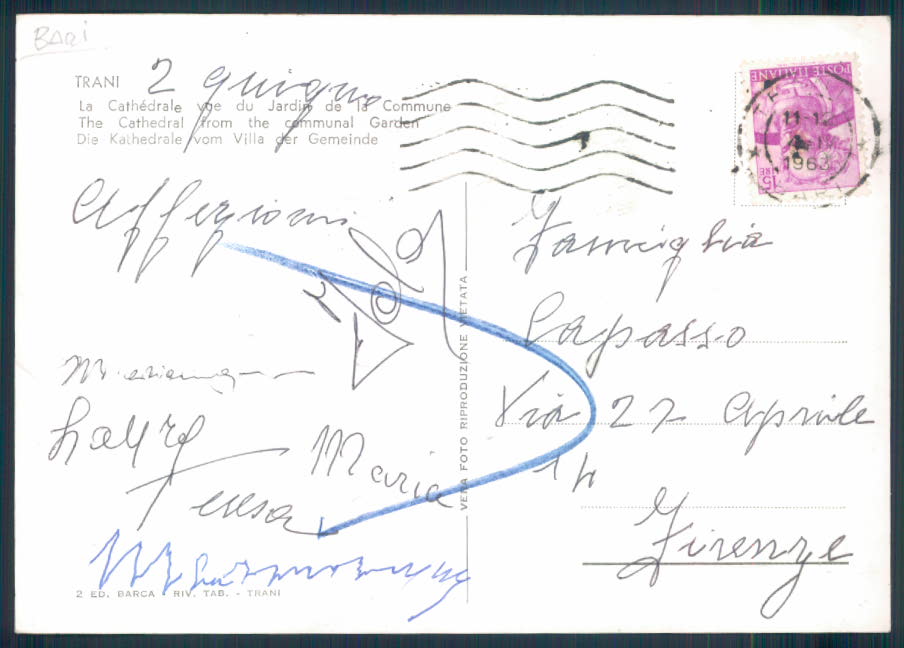 BARI
TRANI 2 giugno
La Cathédrale vue du Jardin de la Commune
The Cathedral from the communal Garden
Die Kathedrale vom Villa der Gemeinde
POSTE ITALIANE
LIRE 15
11-12
1963
Affezioni
Famiglia
Capasso
Via 27 Aprile
14
Firenze
Laura
Maria
Teresa
VERA FOTO RIPRODUZIONE VIETATA
2 ED. BARCA - RIV. TAB. - TRANI